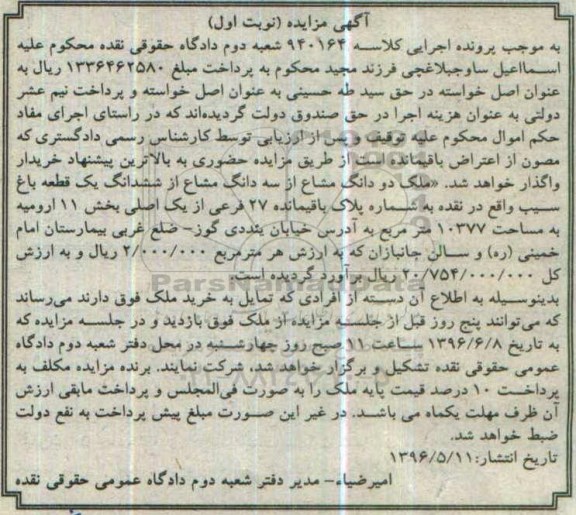 آگهی مزایده (نوبت اول)
به موجب پرونده اجرایی کلاسه ۹۴۰۱۶۴ شعبه دوم دادگاه حقوقی نقده محکوم علیه
اسمااعیل ساوجبلاغچی فرزند مجید محکوم به پرداخت مبلغ ۱۳۳۶۴۶۲۵۸۰ ریال به
عنوان اصل خواسته در حق سید طه حسینی به عنوان اصل خواسته و پرداخت نیم عشر
دولتی به عنوان هزینه اجرا در حق صندوق دولت گردیده‌اند که در راستای اجرای مفاد
حکم اموال محکوم علیه توقیف و پس از ارزیابی توسط کارشناس رسمی دادگستری که
مصون از اعتراض باقیمانده است از طریق مزایده حضوری به بالاترین پیشنهاد خریدار
واگذار خواهد شد. «ملک دو دانگ مشاع از سه دانگ مشاع از ششدانگ یک قطعه باغ
سیب واقع در نقده به شماره پلاک باقیمانده ۲۷ فرعی از یک اصلی بخش ۱۱ ارومیه
به مساحت ۱۰۳۷۷ متر مربع به آدرس خیابان یئددی گوز- ضلع غربی بیمارستان امام
خمینی (ره) و سالن جانبازان که به ارزش هر مترمربع ۲/۰۰۰/۰۰۰ ریال و به ارزش
کل ۲۰/۷۵۴/۰۰۰/۰۰۰ ریال برآورد گردیده است.
بدینوسیله به اطلاع آن دسته از افرادی که تمایل به خرید ملک فوق دارند می‌رساند
که می‌توانند پنج روز قبل از جلسه مزایده از ملک فوق بازدید و در جلسه مزایده که
به تاریخ ۱۳۹۶/۶/۸ ساعت ۱۱ صبح روز چهارشنبه در محل دفتر شعبه دوم دادگاه
عمومی حقوقی نقده تشکیل و برگزار خواهد شد، شرکت نمایند. برنده مزایده مکلف به
پرداخت ۱۰ درصد قیمت پایه ملک را به صورت فی‌المجلس و پرداخت مابقی ارزش
آن ظرف مهلت یکماه می باشد. در غیر این صورت مبلغ پیش پرداخت به نفع دولت
ضبط خواهد شد.
تاریخ انتشار: ۱۳۹۶/۵/۱۱
امیرضیاء- مدیر دفتر شعبه دوم دادگاه عمومی حقوقی نقده
ParsNamadData